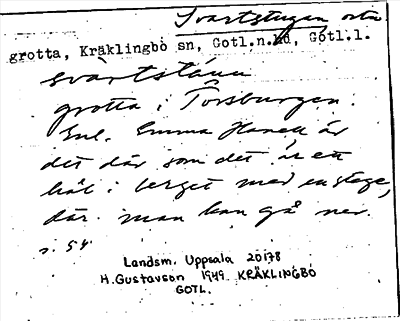 Svartstugan
grotta, Kräklingbo sn, Gotl.n.hd, Gotl.l.
svartstáuu
grotta i Torsburgen.
Enl. Emma Havell är
det där som det är ett
hål i berget med en stege,
där man kan gå ner.
s. 54
Landsm. Uppsala 20178
H. Gustavson 1949. KRÄKLINGBO
GOTL.